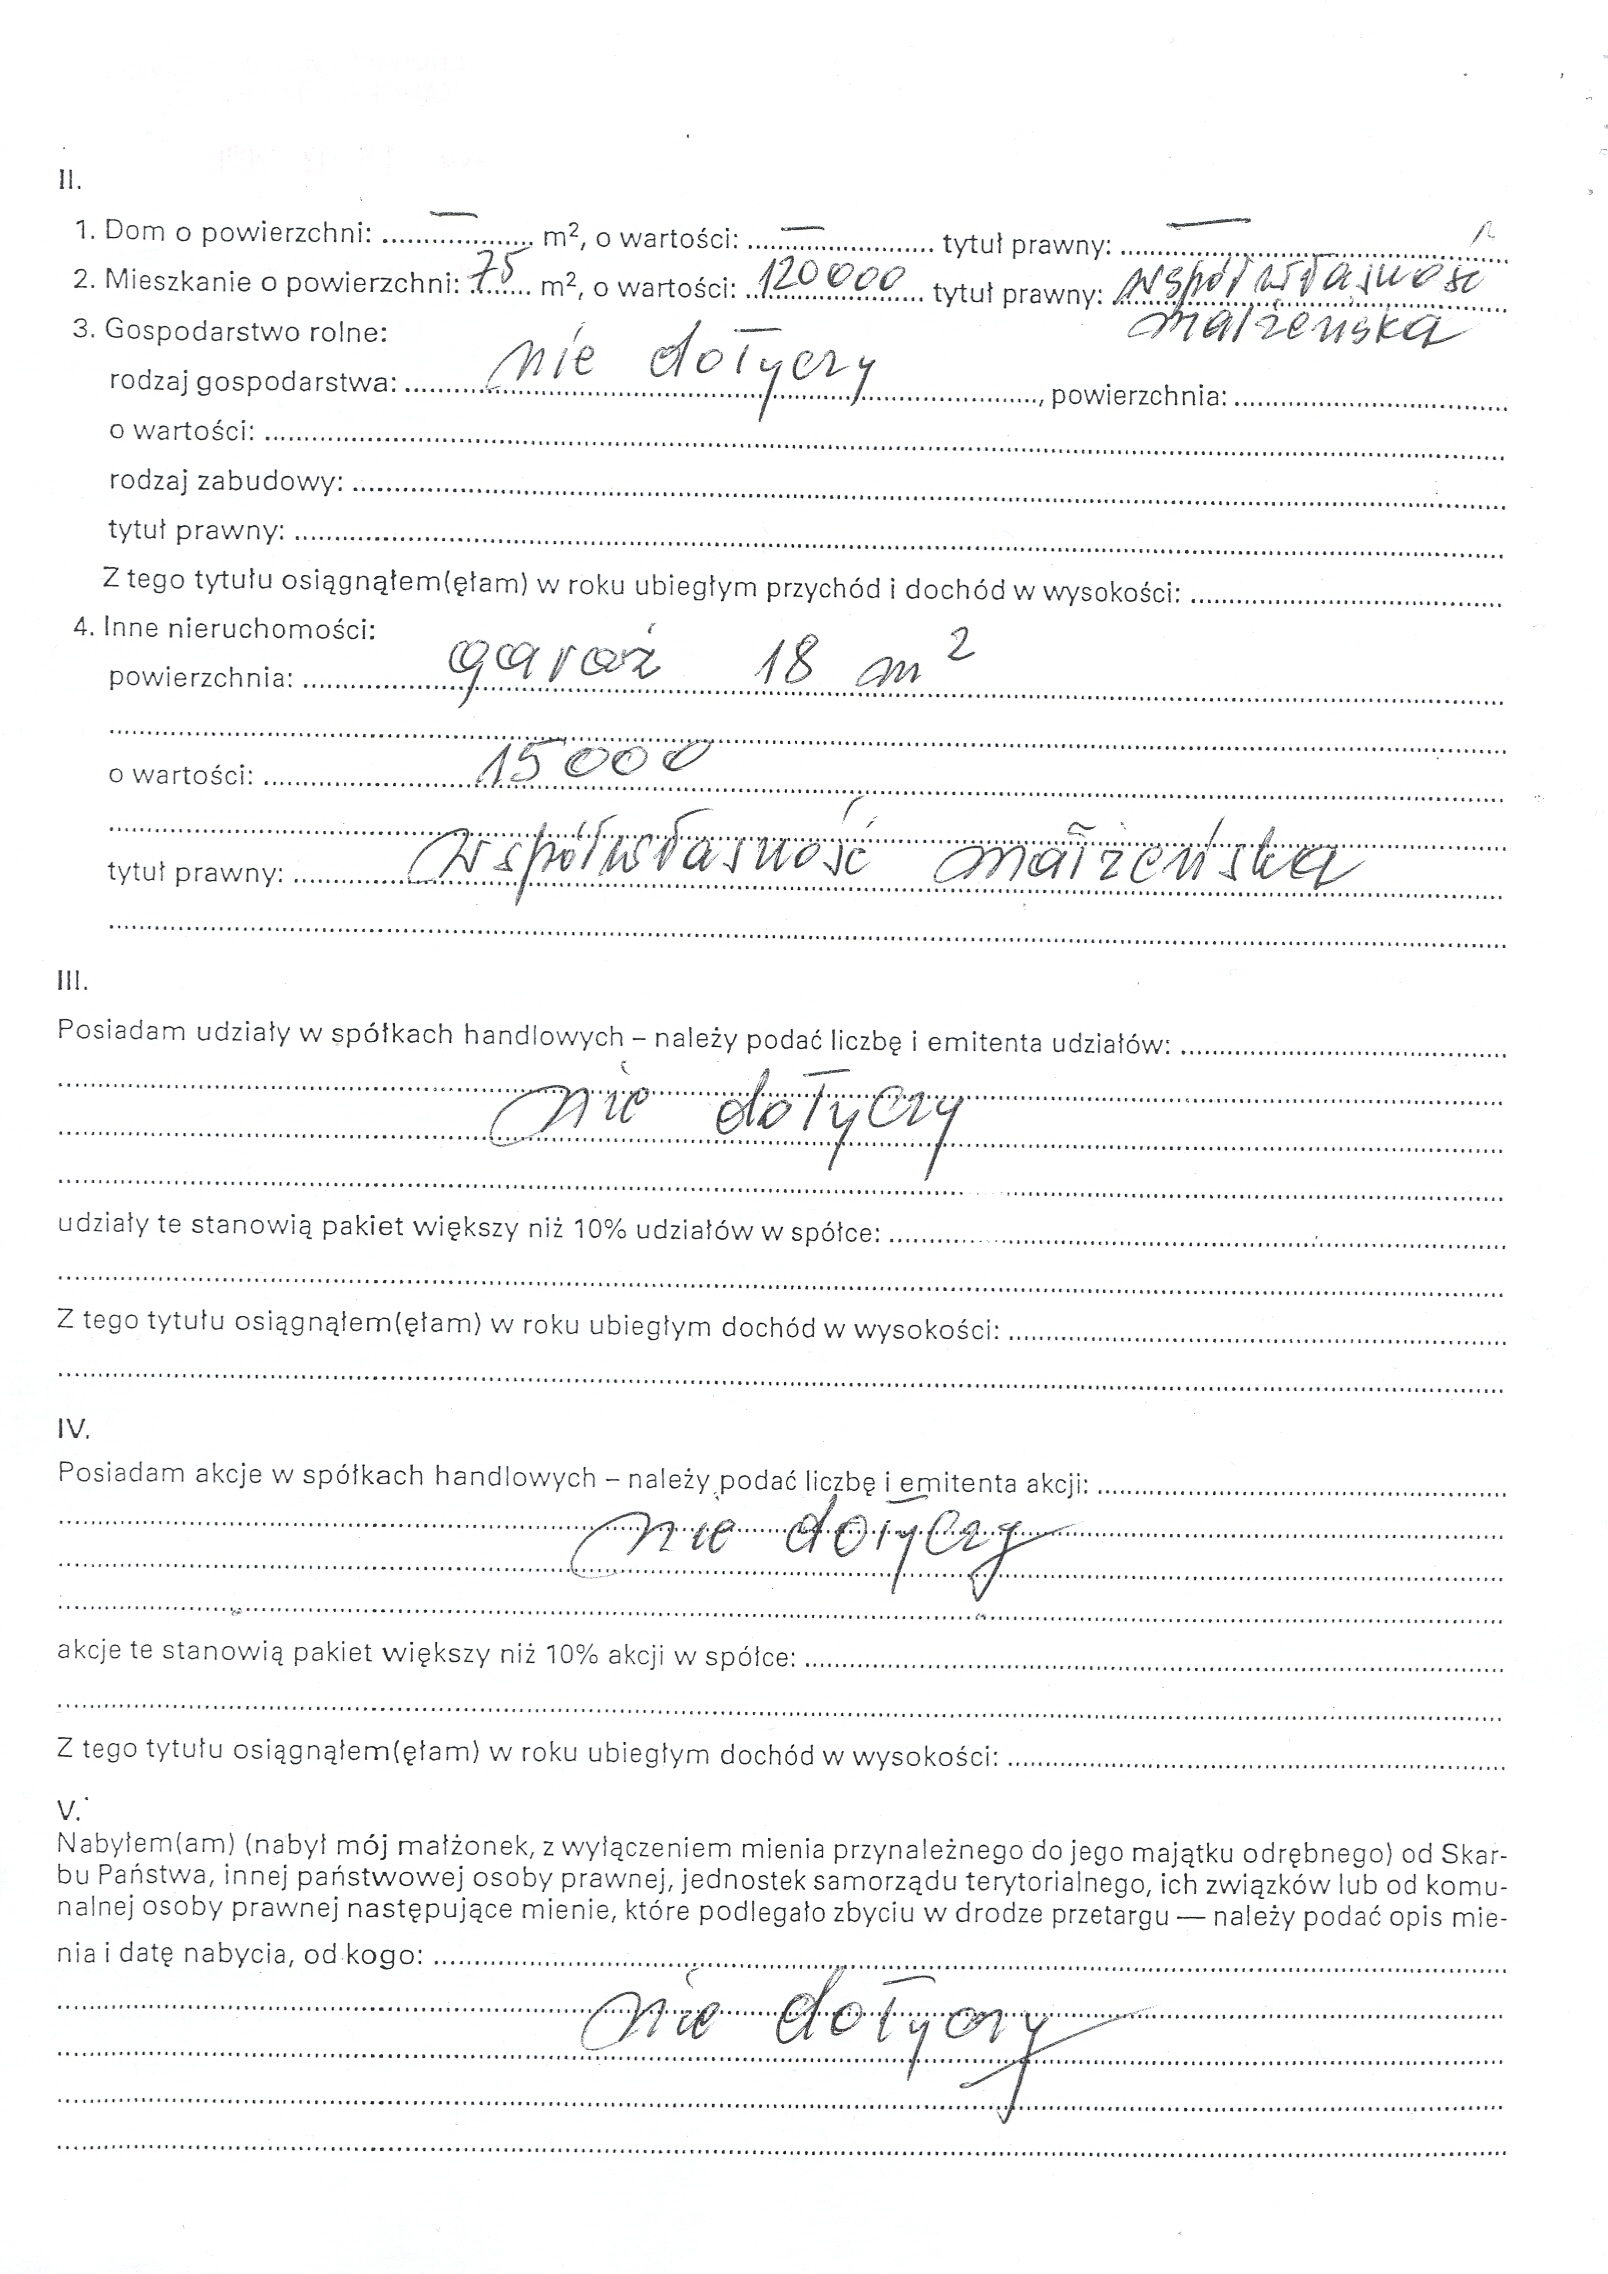 II.
1. Dom o powierzchni: — m², o wartości: — tytuł prawny: —
2. Mieszkanie o powierzchni: 75 m², o wartości: 120000 tytuł prawny: współwłasność
małżeńska
3. Gospodarstwo rolne:
rodzaj gospodarstwa: nie dotyczy, powierzchnia:
o wartości:
rodzaj zabudowy:
tytuł prawny:
Z tego tytułu osiągnąłem(ęłam) w roku ubiegłym przychód i dochód w wysokości:
4. Inne nieruchomości:
powierzchnia: garaż 18 m²
o wartości: 15000
tytuł prawny: współwłasność małżeńska
III.
Posiadam udziały w spółkach handlowych – należy podać liczbę i emitenta udziałów:
nie dotyczy
udziały te stanowią pakiet większy niż 10% udziałów w spółce:
Z tego tytułu osiągnąłem(ęłam) w roku ubiegłym dochód w wysokości:
IV.
Posiadam akcje w spółkach handlowych – należy podać liczbę i emitenta akcji:
nie dotyczy
akcje te stanowią pakiet większy niż 10% akcji w spółce:
Z tego tytułu osiągnąłem(ęłam) w roku ubiegłym dochód w wysokości:
V.
Nabyłem(am) (nabył mój małżonek, z wyłączeniem mienia przynależnego do jego majątku odrębnego) od Skar-
bu Państwa, innej państwowej osoby prawnej, jednostek samorządu terytorialnego, ich związków lub od komu-
nalnej osoby prawnej następujące mienie, które podlegało zbyciu w drodze przetargu — należy podać opis mie-
nia i datę nabycia, od kogo:
nie dotyczy